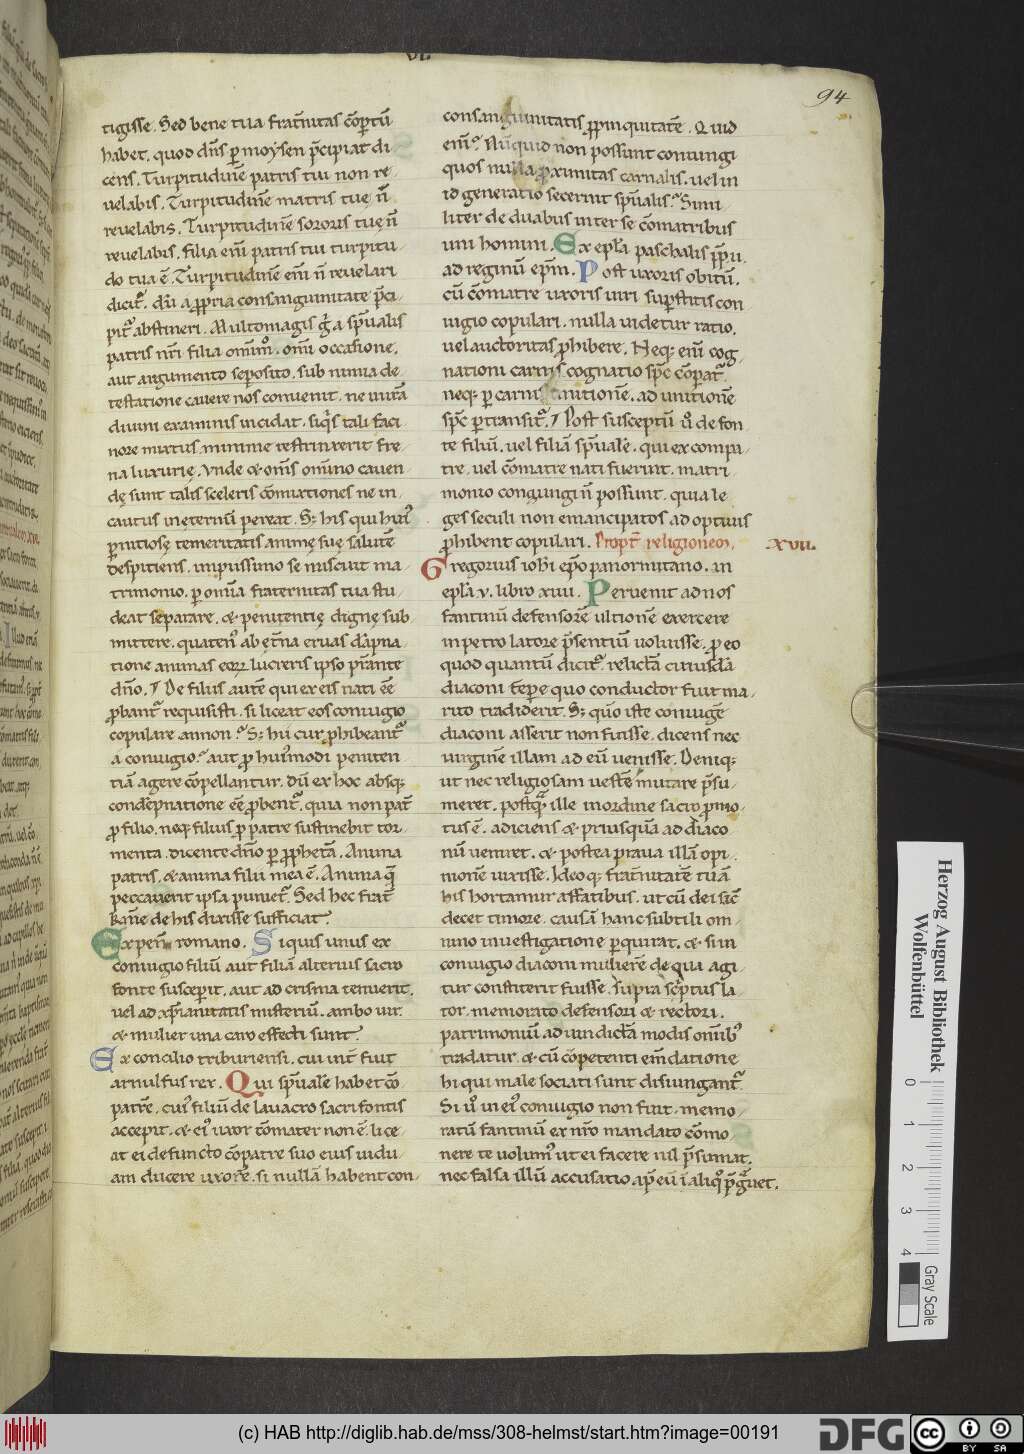 94
tigisse. Sed bene tua frat̄nitas cōp̄tū
habet. quod dn̄s ꝑ moysen p̄cipiat di
cens. Turpitudinē patris tui non re
uelabis. Turpitudinē matris tuę n̄
reuelabis. Turpitudinē sororis tuę n̄
reuelabis. filia eni᷎ patris tui turpitu
do tua ē. Turpitudinē eni᷎ n̄ reuelari
dicit᷑. dū a ꝓpria consanguinitate p̄ci
pit᷑ abstineri. Multomagis g̓ a sp̄ualis
patris nr̄i filia omīmo. omī occasione.
aut argumento seposito. sub nimia de
testatione cauere nos conuenit. ne in irā
diuini examinis incidat. siq̓s tali faci
nore mixtus minime restrinxerit fre
na luxurię. Vnde & oms̄ omīno cauen
dę sunt talis sceleris cōmixtiones ne in
cautus inęternū pereat. S; his qui hui᷒
ꝑnitiosę temeritatis animę suę salutē
despitiens. inpiissimo se miscuit ma
trimonio. ꝑ omīa fraternitas tua stu
deat separare. & penitentię dignę sub
mittere. quaten᷒ ab ęt̄na eruas dāpna
tione animas eoꝝ lucreris ipso p̄stante
dn̄o. De filiis autē qui ex eis nati eē
ꝓbant᷑ requisisti. si liceat eos coniugio
copulare annon? S; hii cur ꝓhibeant᷑
a coniugio? aut ꝓ hui᷒modi peniten
tiā agere cōpellantur. dū ex hoc absq;
condēpnatione eē ꝓbent᷑. quia non pat̄
ꝓ filio. neq; filius ꝓ patre sustinebit tor
menta. dicente dn̄o ꝑ ꝓphetā. Anima
patris. & anima filii mea ē. Anima q̄
peccauerit ipsa puniet᷑. Sed hec frat̄
kāme de his dixisse sufficiat.
Ex pen̄ romano. Si quis unus ex
coniugio filiū aut filiā alterius sacro
fonte susceꝑit. aut ad crisma tenuerit.
uel ad xp̄ianitatis misteriū. ambo uir
& mulier una caro effecti sunt.
Ex concilio triburiensi. cui int̄ fuit
arnulfus rex. Qui sp̄ualē habet cō
patrē. cui᷒ filiū de lauacro sacri fontis
accepit. & ei᷒ uxor cōmater non ē. lice
at ei defuncto cōpatre suo eius uidu
am ducere uxorē. si nullā habent con
consanguinitatis ꝓpinquitatē. Quid
enī? Nūquid non possunt coniungi
quos nulla ꝓximitas carnalis. uel in
id generatio secernit sp̄ualis? Simi
liter de duabus inter se cōmatribus
uni homini. Ex epl̄a paschalis pp̄ii.
ad reginū ep̄m. Post uxoris obitū.
cū cōmatre uxoris uiri suꝑstitis con
iugio copulari. nulla uidetur ratio.
uel auctoritas ꝓhibere. Neq; enī cog
nationi carnis cognatio sp̄c cōparat᷑.
neq; ꝑ carnis unitionē. ad unitionē
sp̄c ꝑtransit᷑. Post susceptū ů de fon
te filiū. uel filiā sp̄ualē. qui ex compa
tre. uel cōmatre nati fuerint. matri
monio coniungi n̄ possunt. quia le
ges seculi non emancipatos adoptiuis
ꝓhibent copulari. Propt̄ religionem. XVII.
Gregorius ioh̄i ep̄o panormitano. in
epl̄a v. libro xiii. Peruenit ad nos
fantinū defensorē ultionē exercere
in petro latore p̄sentiū uoluisse. ꝓ eo
quod quantū dicit᷑. relictā cuiusdā
diaconi tēpe quo conductor fuit ma
rito tradiderit. S; quō iste coniugē
diaconi asserit non fuisse. dicens nec
uirginē illam ad eū uenisse. Deniq;
ut nec religiosam uestē mutare p̄su
meret. postq̄ ille inordine sacro ꝓmo
tus ē. adiciens & priusquā ad diaco
nū ueniret. & postea praua illā opi
nionē uixisse. Ideoq; frat̄nitatē tuā
his hortamur affatibus. ut cū dei sic̄
decet timore. causā hanc subtili om
nino inuestigatione ꝑquirat. & si in
coniugio diaconi mulierē de qua agi
tur constiterit fuisse. supra sc̄ptus la
tor. memorato defensori & rectori.
patrimoniū ad uindictā modis omīb᷒
tradatur. & cū cōpetenti em̄datione
hi qui male sociati sunt disiungant᷑.
Si ů in ei᷒ coniugio non fuit. memo
ratū fantinū ex nr̄o mandato cōmo
nere te uolum᷒ ut ei facere nil p̄sumat.
nec falsa illū accusatio ap̄ eū ī aliq̊ p̄g̓uet.
Herzog August Bibliothek
Wolfenbüttel
0 1 2 3 4
Gray Scale
(c) HAB http://diglib.hab.de/mss/308-helmst/start.htm?image=00191
DFG
cc
BY SA